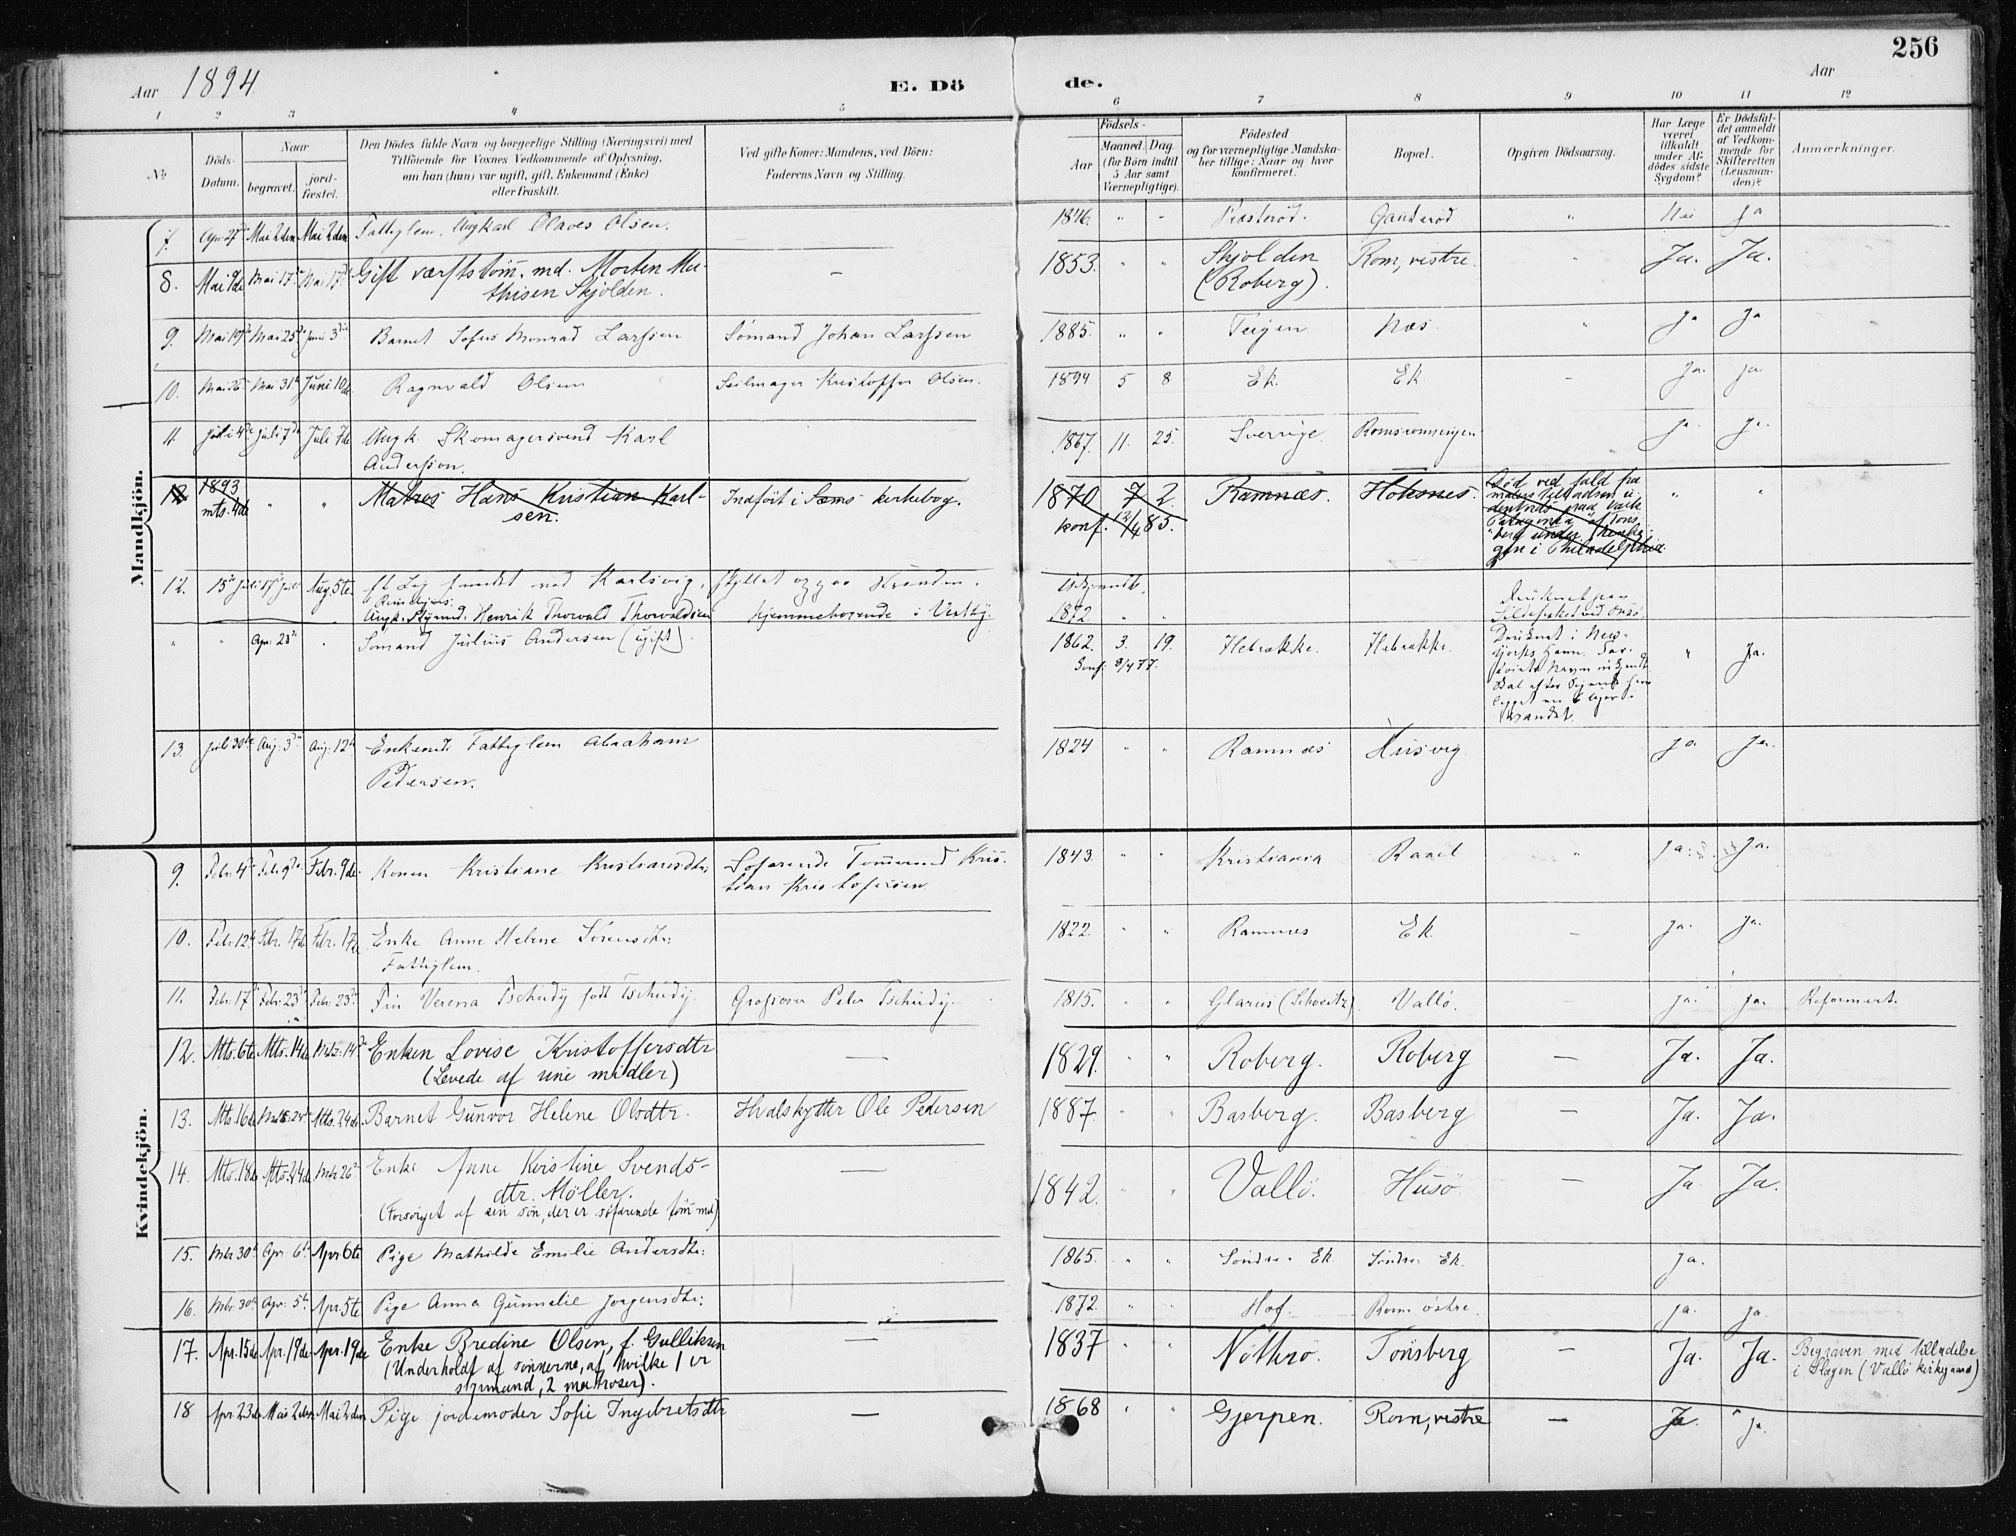 256
Aar 1894. E. Dö de. Aar
1 2 3 4 5 6 7 8 9 10 11 12
No Döds-Datum. Naar begravet. jordfæstet. Den Dödes fulde Navn og borgerlige Stilling (Næringsvei) med Tilföiende for Voxnes Vedkommende af Oplysning, om han (hun) var ugift, gift, Enkemand (Enke) eller fraskilt. Ved gifte Koner: Mandens, ved Börn: Faderens Navn og Stilling. Födsels- Aar Maaned. Dag. (for Börn indtil 5 Aar samt Værnepligtige). Födested og for værnepligtige Mandskaber tillige: Naar og hvor konfirmeret. Bopæl. Opgiven Dödsaarsag. Har Læge været tilkaldt under Afdödes sidste Sygdom? Er Dödsfaldet anmeldt af Vedkommende for Skifteretten (Lensmanden)? Anmærkninger.
Mandkjön.
7. Apr. 27 Mai 2den Mai 2den Fattiglem, Ungkarl Olaves Olsen. 1846. " " Gauterød " Nei Ja
8. Mai 9de Mai 17de Mai 17de Gift værftstøm.md. Morten Mathisen Skjolden. — 1853. " " Skjolden (Roberg). Rom, vestre. " Ja. Ja.
9. Mai 19de Mai 25de Juni 3die Barnet Sofus Monrad Larssen Sømand Johan Larssen 1885. " " Teijen Næs. " Ja Ja
10. Mai 26 Mai 31te Juni 10de Ragnvald Olsen Seilmager Kristoffer Olsen. 1894 5 8 Ek. Ek — Ja. Ja.
11 Juli 4de Juli 7de Juli 7de Ungk. Skomagersvend Karl Anderssen. 1867. 11. 25. Sverrige. Romsrønningen Ja. Ja.
12 1893 Mts. 4de " " Matros Hans Kristian Karlsen. Indført i Sems kirkebog. 1870 7 2. konf. 12/4 85. Ramnæs. Hoksnes. Død ved fald fra " "
12. 15de Juli 17de Juli Aug. 5te Et Lig fundet ved Karlsvig, skyllet op paa Stranden.
Ungk. Styrmd. Henrik Thorvald Thorvaldsen hjemmehørende i Vestby. 1872 " " Druknet paa
" " Apr. 23de " Sømand Julius Andersen (ugift). 1862. 3. 19. Konf. 8/4 77. Hebrække. Hebrække. Druknet i New-Yorks Havn. " Ja.
13. Juli 30te Aug. 3die Aug. 12te Enkemd. Fattiglem Abraham Pedersen. 1824 " " Ramnæs Husvig Ja Ja.
Kvindekjön.
9. Febr. 4de Febr. 9de Febr. 9de. Konen Kristiane Kristiansdtr. Søfarende Tømmermd Kristian Kristofersen. 1843. " " Kristiania Rael " Ja. Ja.
10. Febr. 12te Febr. 17de Febr. 17de Enke Anne Helene Sørensdtr. Fattiglem. 1822. " " Ramnæs Ek. — Ja. Ja.
11. Febr. 17de Febr. 23de Febr. 23de Fru Verena Tschudy født Tschudy. Grosserer Peter Tschudy. 1815. " " Glarus (Schweitz). Vallø. Ja. Ja. Reformert.
12. Mts. 6te Mts. 14de Mts. 14de Enken Lovise Kristoffersdtr (Levede af sine midler) — 1829. " " Roberg. Roberg — Ja. Ja.
13. Mts. 16de Mts. 24de Mts. 24de. Barnet Gunvor Helene Olsdtr. Hvalskytter Ole Pedersen 1887. " " Basberg. Basberg — Ja. Ja.
14. Mts. 18de Mts. 24de Mts 26de Enke Anne Kristine Svendsdtr. Møller. (Forsørget af sin søn, der er søfarende tøm.md) — 1842. " " Vallø. Husø. — Ja. Ja.
15. Mts 30te Apr. 6te Apr 6te Pige Mathilde Emilie Andersdtr: 1865. " " Søndre Ek Søndre Ek. Ja.
16. Mts. 30te Apr. 5te Apr. 5te Pige Anna Gunnelie Jørgensdtr: 1872. " " Hof. Rom østre. Ja. Ja
17. Apr. 15de Apr. 19de Apr. 19de Enke Bredine Olsen, f. Gulliksen (Underholdt af sønnerne, af hvilke 1 er styrmand, 2 matroser). — 1837 " " Nøtterø. Tønsberg — Ja. Ja. Begraven med tilladelse i Slagen (Vallø kirkegaard)
18 Apr. 23de Mai 2den Mai 2den Pige jordemoder Sofie Ingebretsdtr — 1868 " " Gjerpen. Rom, vestre — Ja. Ja.